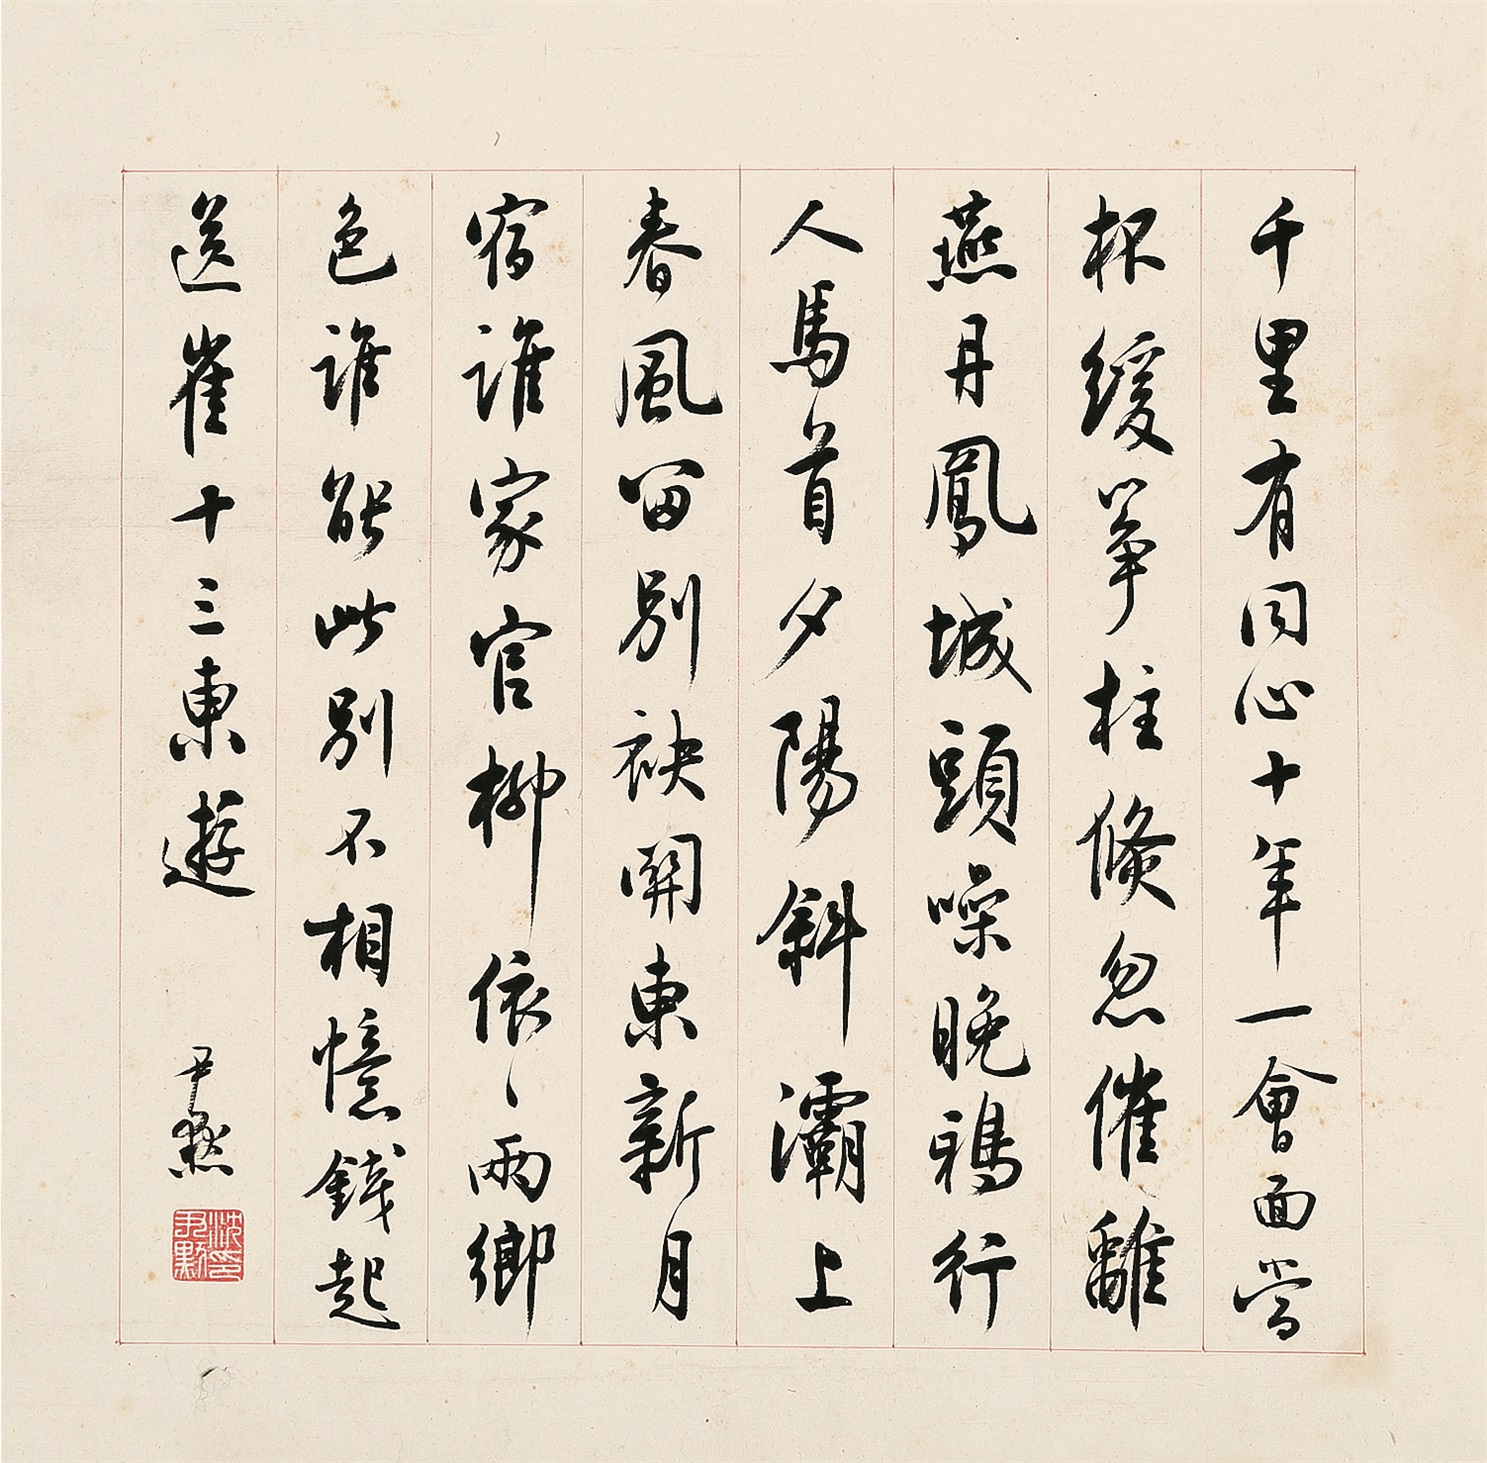 千里有同心十年一會面當
杯緩箏柱倏忽催離
燕丹鳳城頭噪晚鴉行
人馬首夕陽斜灞上
春風留別袂關東新月
宿誰家官柳依、兩鄉
色誰能此別不相憶錢起
送崔十三東遊
尹默
沈尹默印